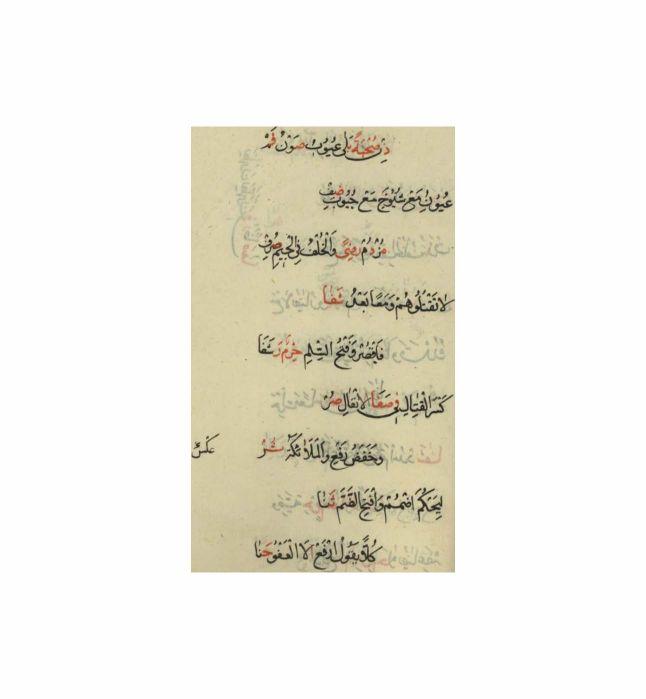 دن صحبة بلى غيوب صون فم
عيون مع شيوخ مع جيوب صف
مز دم رضى والخلف في الجيم صرف
لا تقتلوهم ومعا بعد شفا
فاقصر وفتح السلم حرم رشفا
كسر القتال في وصفا الانفال صر
وخفض رفع والملائكة ثر
عكس
ليحكم اضمم وافتح الضم ثنا
كلا يقول ارفع الا العفو حنا